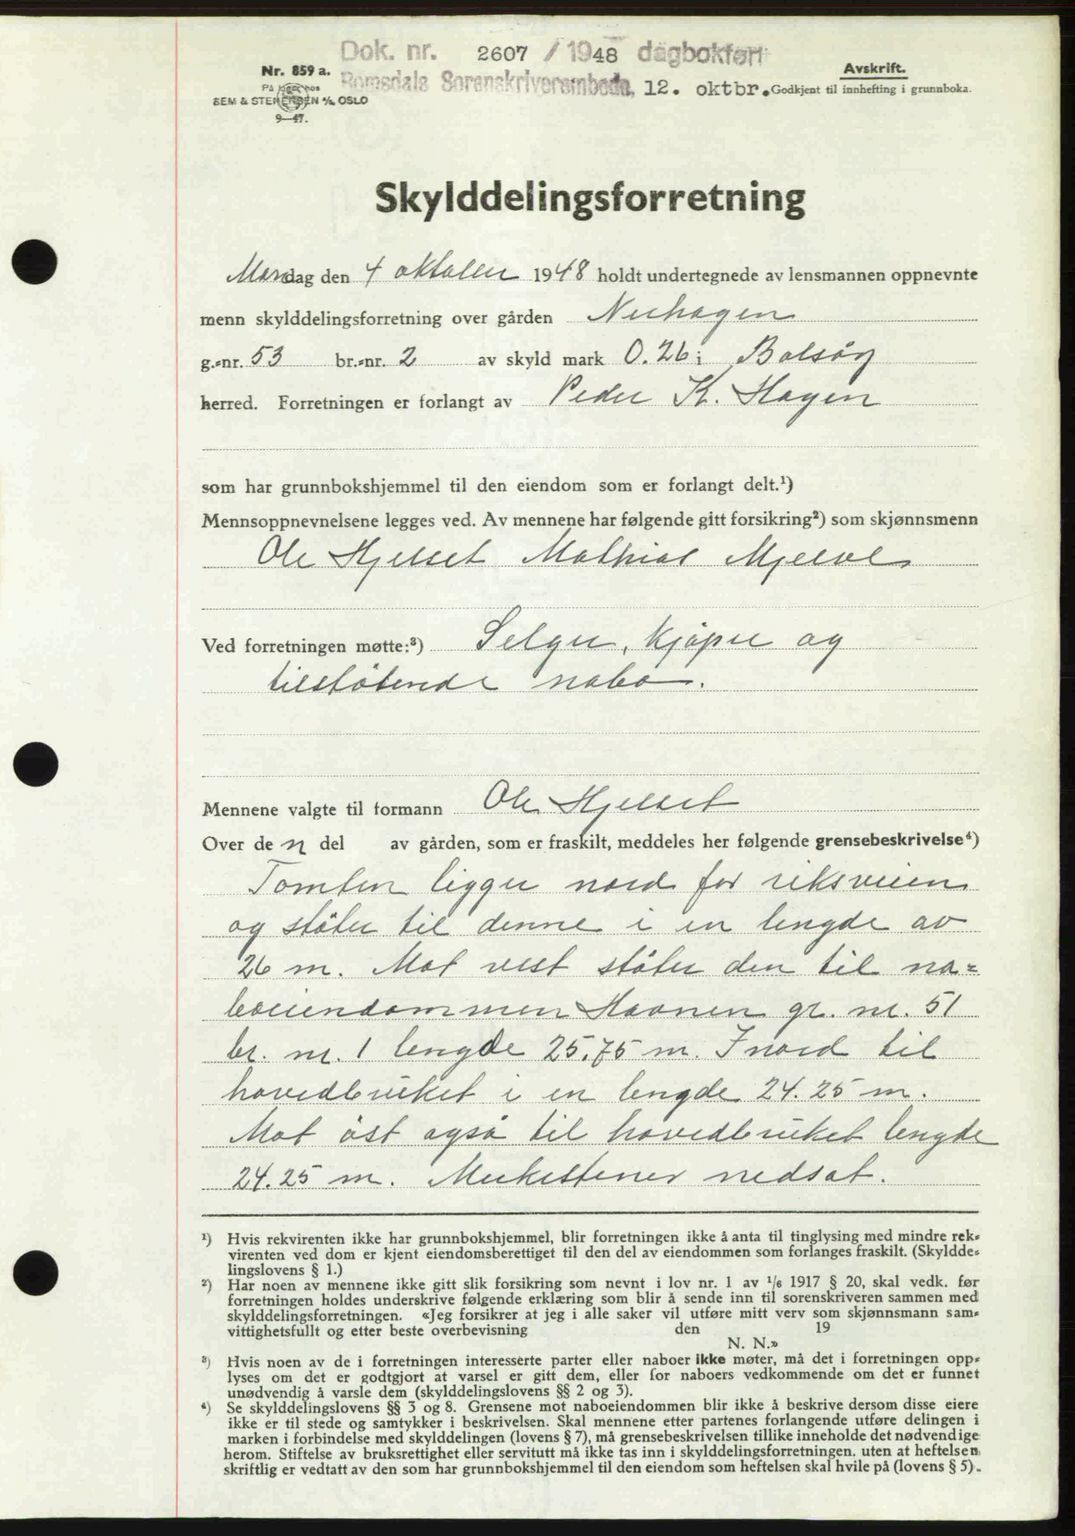 Dok. nr. 2607 / 1948 dagbokført
Nr. 859 a.
Romsdals Sorenskriverembede, 12. oktbr.
Avskrift.
Godkjent til innhefting i grunnboka.
SEM & STENERSEN A/S, OSLO
9—47.
Skylddelingsforretning
Mandag den 4 oktober 1948 holdt undertegnede av lensmannen oppnevnte
menn skylddelingsforretning over gården Nerhagen
g.-nr. 53 br.-nr. 2 av skyld mark 0.26 i Bolsøy
herred. Forretningen er forlangt av Peder K. Hagen
som har grunnbokshjemmel til den eiendom som er forlangt delt.¹)
Mennsoppnevnelsene legges ved. Av mennene har følgende gitt forsikring²) som skjønnsmenn
Ole Hjelset Mathias Mjelve
Ved forretningen møtte:³) Selger, kjøper og
tilstøtende nabo.
Mennene valgte til formann Ole Hjelset
Over de n del av gården, som er fraskilt, meddeles her følgende grensebeskrivelse⁴)
Tomten ligger nord for riksveien
og støter til denne i en lengde av
26 m. Mot vest støter den til na=
boeiendommen Haanen gr. nr. 51
br. nr. 1 lengde 25.75 m. I nord til
hovedbruket i en lengde 24.25 m.
Mot øst også til hovedbruket lengde
24.25 m. Merkestener nedsat.
¹) Hvis rekvirenten ikke har grunnbokshjemmel, blir forretningen ikke å anta til tinglysing med mindre rek-
virenten ved dom er kjent eiendomsberettiget til den del av eiendommen som forlanges fraskilt. (Skyldde-
lingslovens § 1.)
²) Har noen av mennene ikke gitt slik forsikring som nevnt i lov nr. 1 av 1/6 1917 § 20, skal vedk. før
forretningen holdes underskrive følgende erklæring som blir å sende inn til sorenskriveren sammen med
skylddelingsforretningen. «Jeg forsikrer at jeg i alle saker vil utføre mitt verv som skjønnsmann sam-
vittighetsfullt og etter beste overbevisning den 19
N. N.»
³) Hvis noen av de i forretningen interesserte parter eller naboer ikke møter, må det i forretningen opp-
lyses om det er godtgjort at varsel er gitt dem, eller for naboers vedkommende om det er funnet
unødvendig å varsle dem (skylddelingslovens §§ 2 og 3).
⁴) Se skylddelingslovens §§ 3 og 8. Grensene mot naboeiendommen blir ikke å beskrive dersom disse eiere
ikke er til stede og samtykker i beskrivelsen. Skal mennene etter partenes forlangende utføre delingen i
marken i forbindelse med skylddelingen (lovens § 7), må grensebeskrivelsen tillike inneholde det nødvendige
herom. Stiftelse av bruksrettighet eller servitutt må ikke tas inn i skylddelingsforretningen, uten at heftelsen
skriftlig er vedtatt av den som har grunnbokshjemmel til den eiendom som heftelsen skal hvile på (lovens § 5).